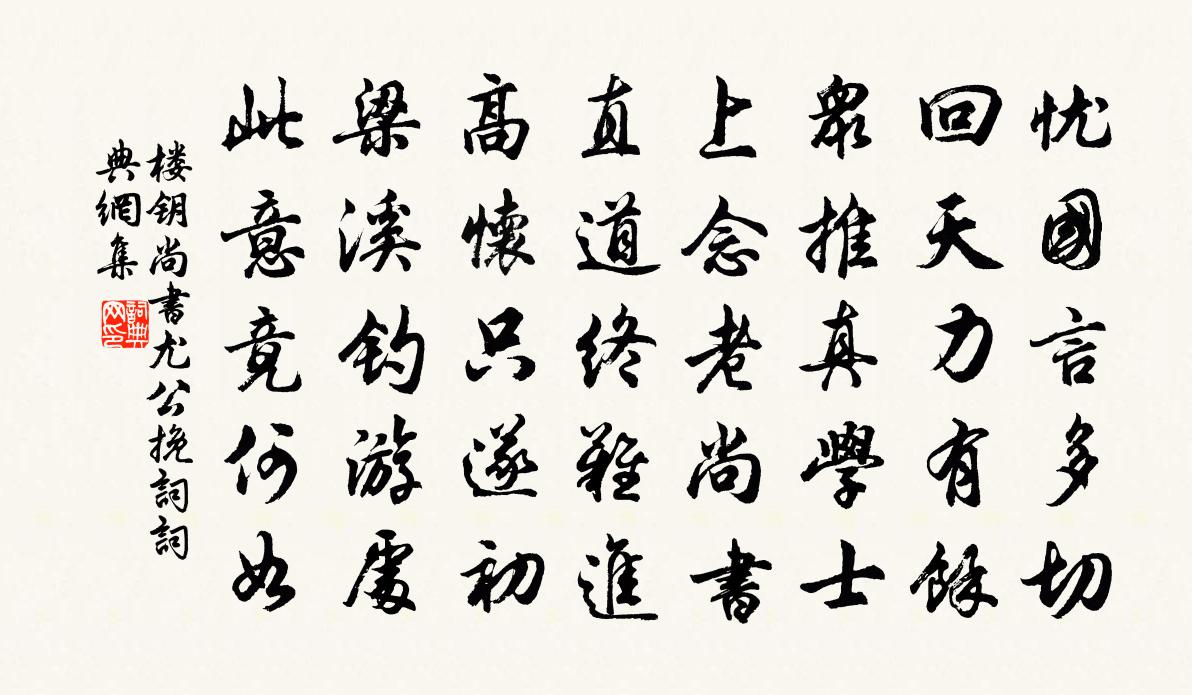 忧國言多切
回天力有餘
眾推真學士
上念老尚書
直道终難進
高懷只遂初
梁溪钓游處
此意竟何如
楼钥尚書尤公挽詞詞
典網集
詞典網印